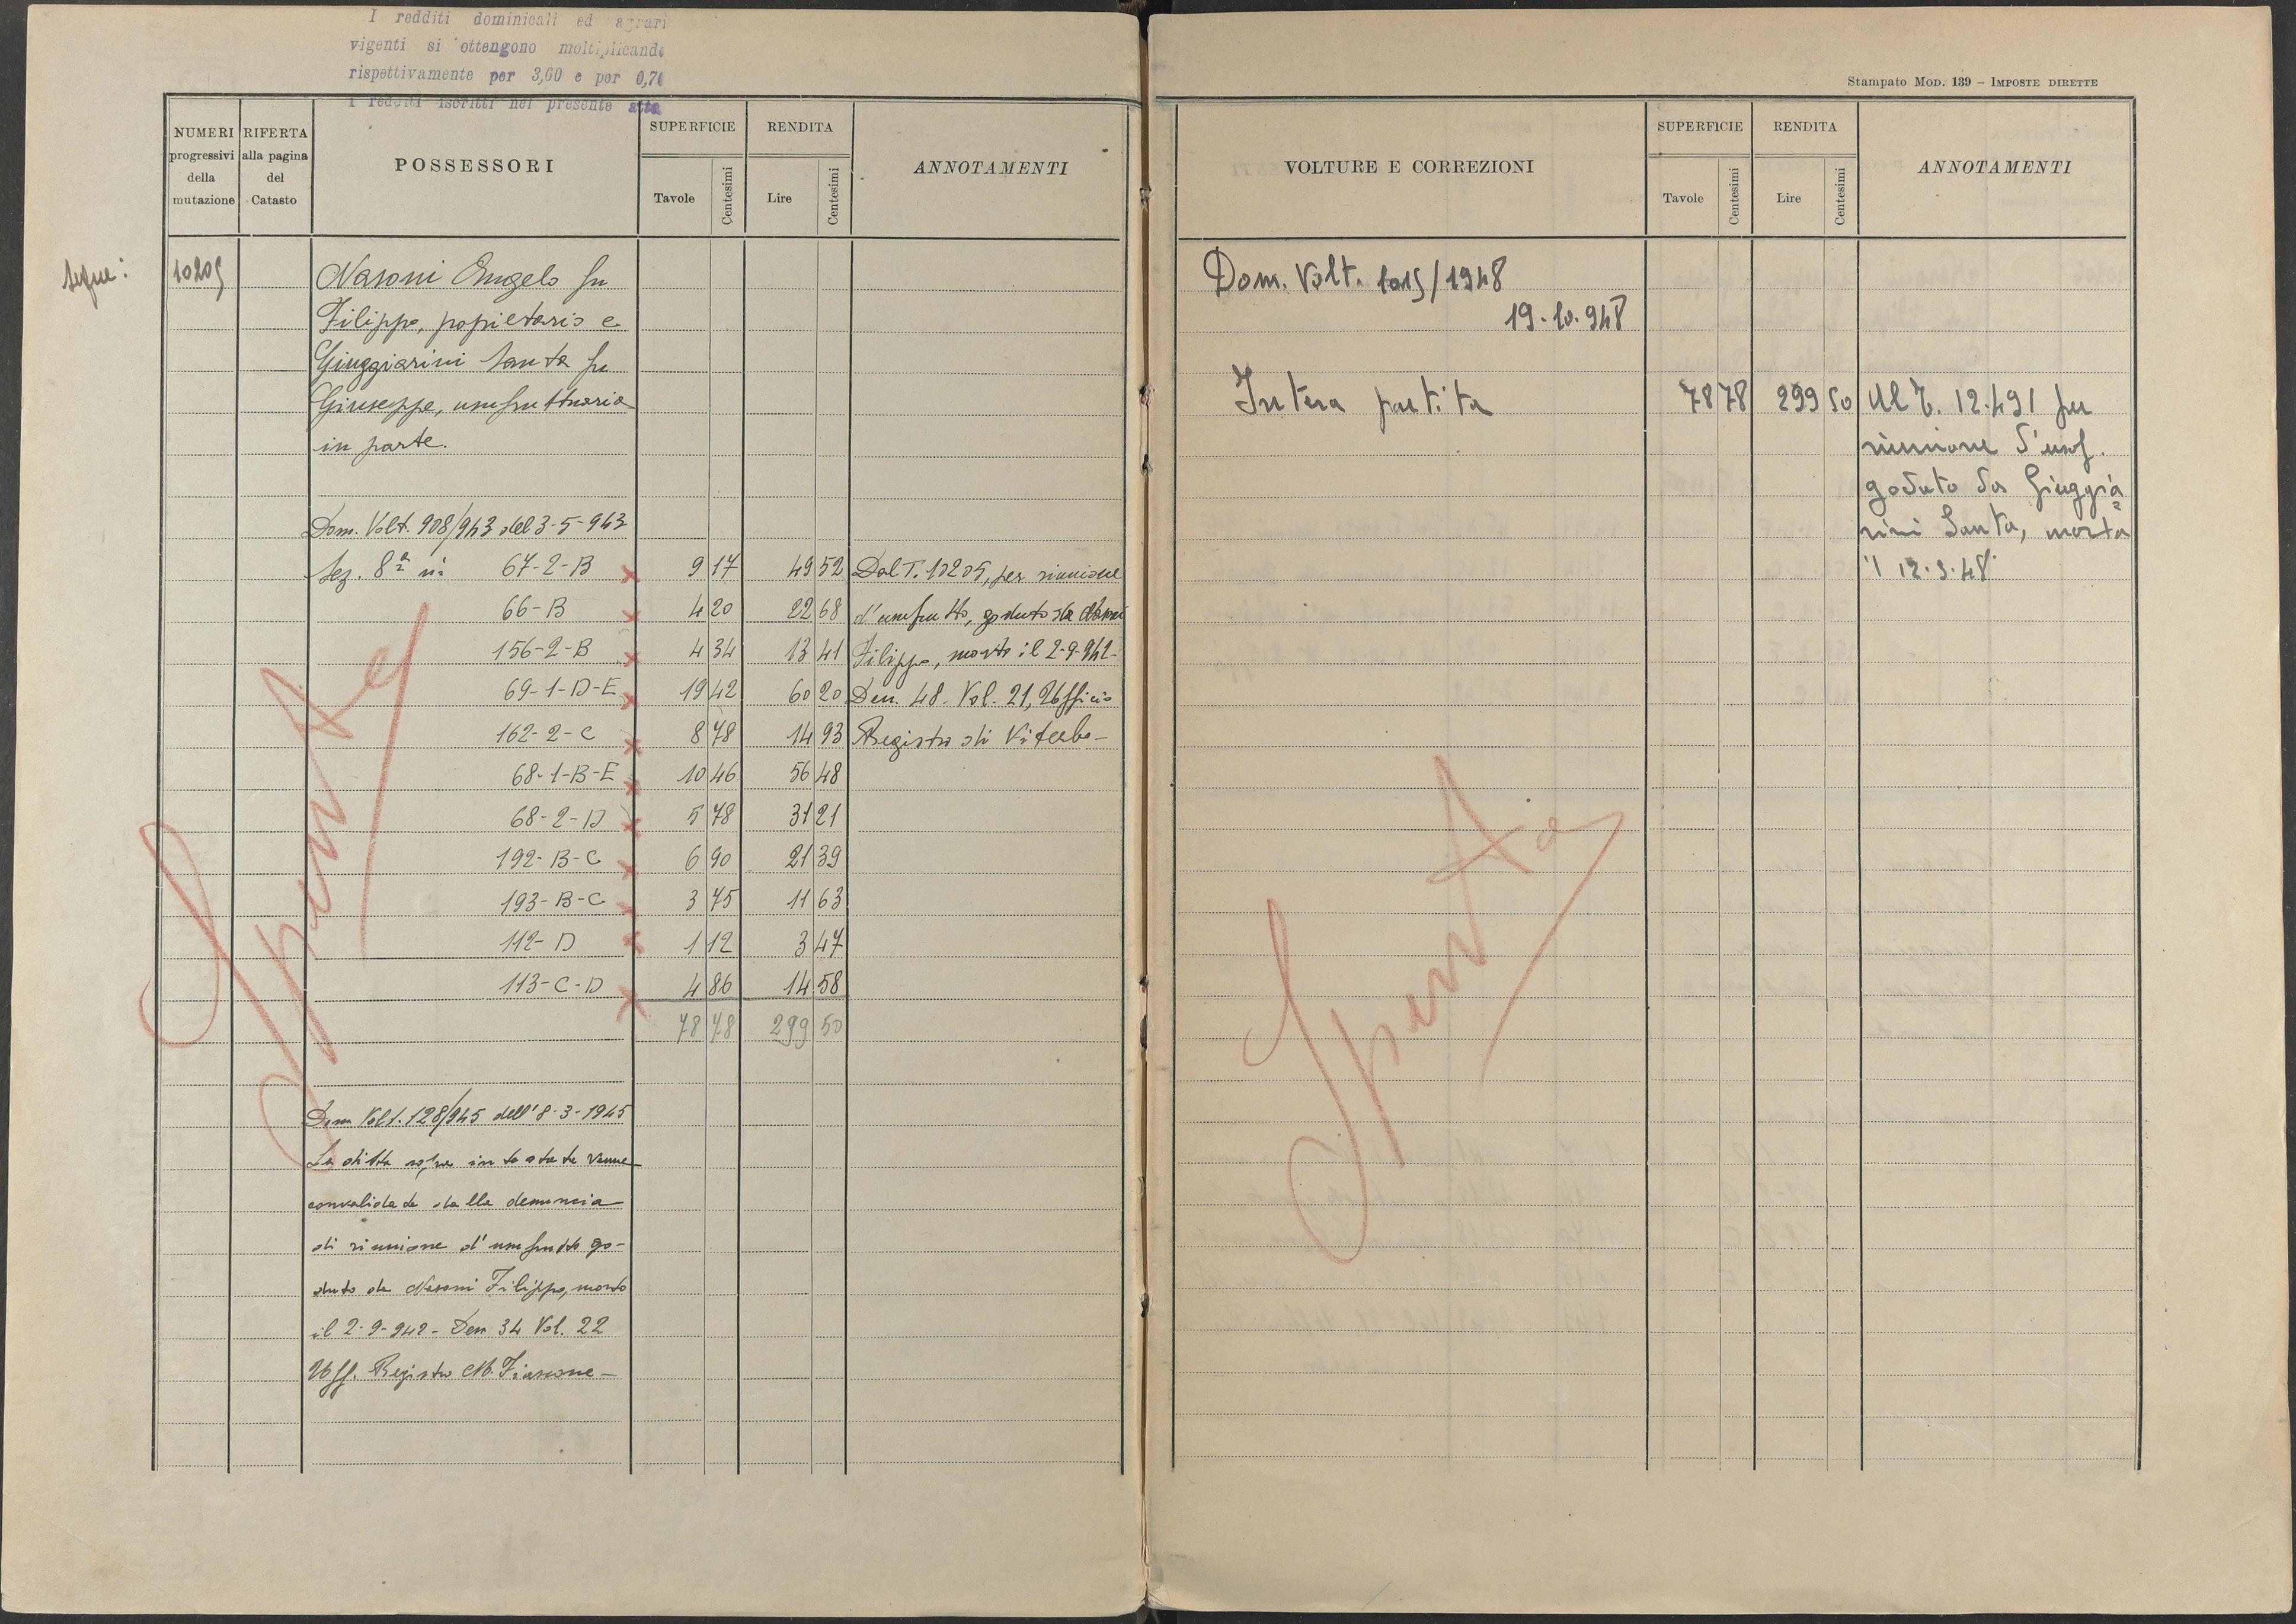 I redditi dominicali ed agrari
vigenti si ottengono moltiplicando
rispettivamente per 3,60 e per 0,70
I redditi iscritti nel presente atto
NUMERI progressivi della mutazione
RIFERTA alla pagina del Catasto
POSSESSORI
SUPERFICIE
Tavole Centesimi
RENDITA
Lire Centesimi
ANNOTAMENTI
Segue: 10205
Nasoni Angelo fu
Filippo, popietario e
Giuggiarini Santa fu
Giuseppe, usufruttuaria
in parte.
Dom. Volt. 908/943 del 3-5-943
Sez. 8ª ni 67-2-B 9 17 49 52 Dal T. 10205, per riunione
66-B 4 20 22 68 d'usufrutto, goduto da Nasoni
156-2-B 4 34 13 41 Filippo, morto il 2-9-942-
69-1-D-E 19 42 60 20 Den. 48. Vol. 21, Ufficio
162-2-C 8 78 14 93 Registro di Viterbo-
68-1-B-E 10 46 56 48
68-2-D 5 78 31 21
192-B-C 6 90 21 39
193-B-C 3 75 11 63
112-D 1 12 3 47
113-C-D 4 86 14 58
78 78 299 50
Spenta
Dom Volt. 128/945 dell'8-3-1945
La ditta sopra intestata venne
convalidata dalla denuncia
di riunione d'usufrutto go-
duto da Nasoni Filippo, morto
il 2-9-942- Den 34 Vol. 22
Uff. Registro M. Fiascone-
Stampato MOD. 139 – IMPOSTE DIRETTE
VOLTURE E CORREZIONI
SUPERFICIE
Tavole Centesimi
RENDITA
Lire Centesimi
ANNOTAMENTI
Dom. Volt. 1015/1948
19.10.948
Intera partita 78 78 299 50 Al T. 12.491 per
riunione d'usuf.
goduto da Giuggia=
rini Santa, morta
il 12.3.48.
Spenta